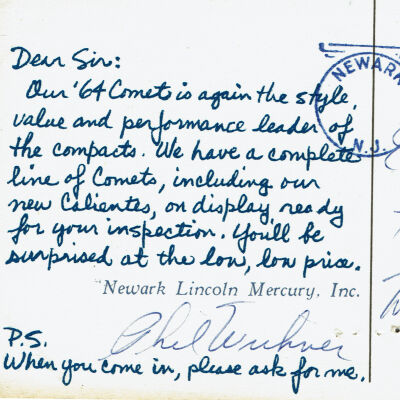 Dear Sir:
Our '64 Comet is again the style,
value and performance leader of
the compacts. We have a complete
line of Comets, including our
new Calientes, on display, ready
for your inspection. You'll be
surprised at the low, low price.
Newark Lincoln Mercury, Inc.
Phil
P.S.
When you come in, please ask for me.
NEWARK
N.J.